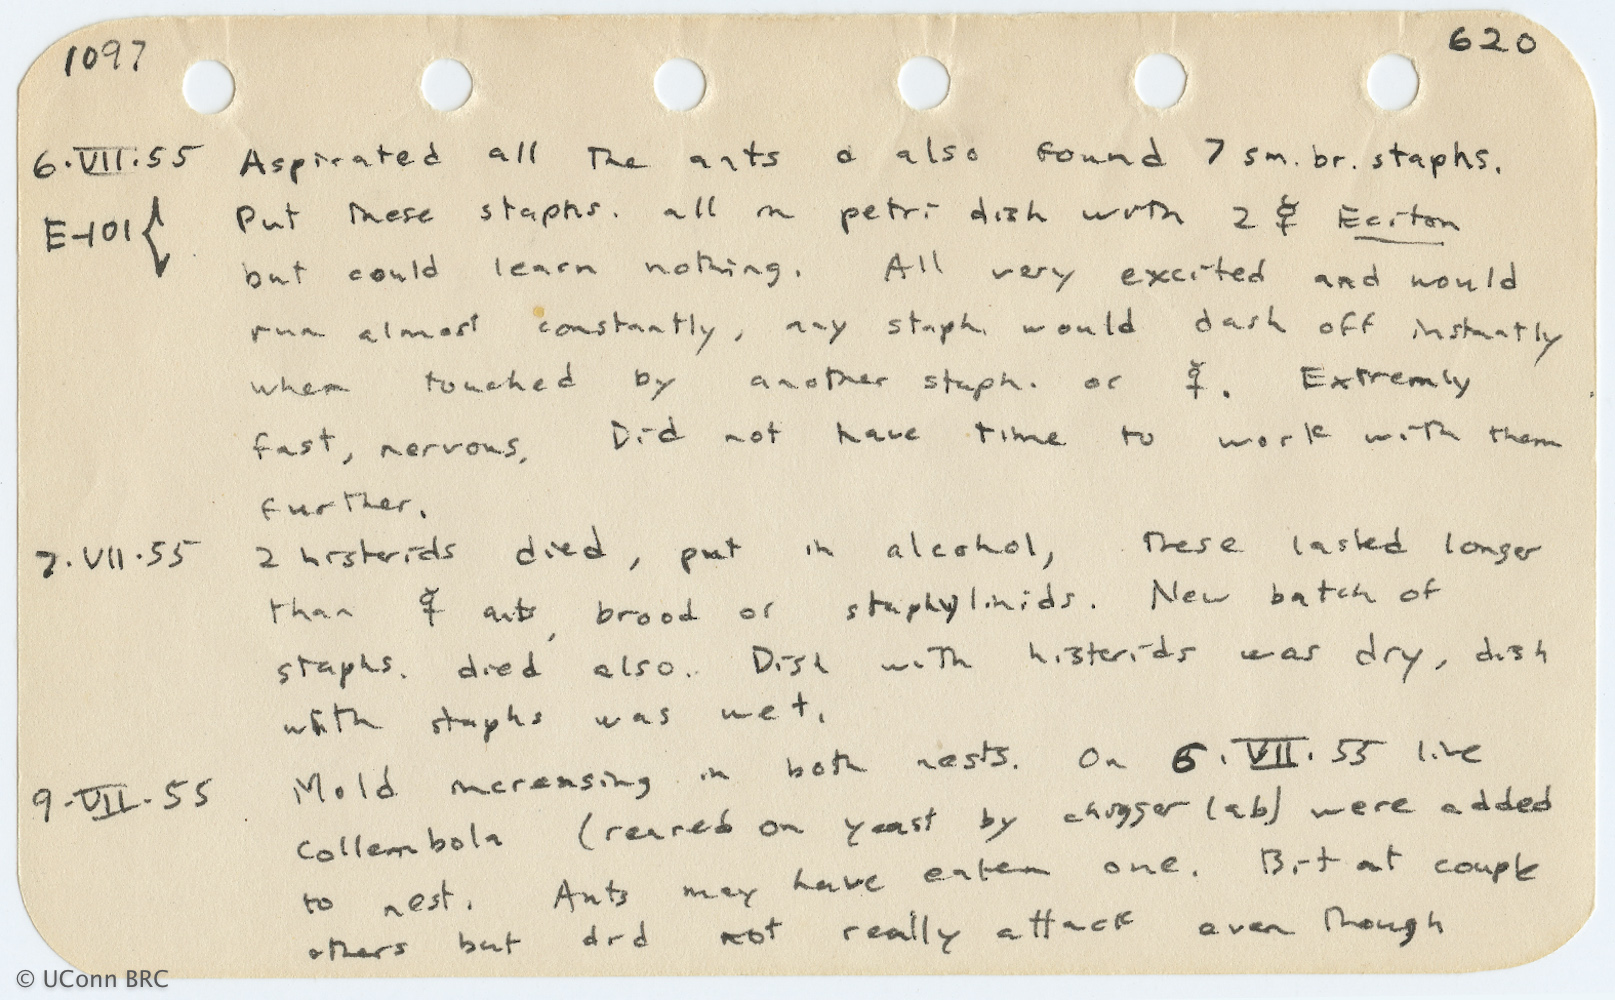 1097 620
6.VII.55 Aspirated all the ants & also found 7 sm. br. staphs.
E-101 { Put these staphs. all in petri dish with 2 ☿ Eciton
but could learn nothing. All very excited and would
run almost constantly, any staph. would dash off instantly
when touched by another staph. or ☿. Extremly
fast, nervous. Did not have time to work with them
further.
7.VII.55 2 histerids died, put in alcohol, these lasted longer
than ☿ ants, brood or staphylinids. New batch of
staphs. died also. Dish with histerids was dry, dish
with staphs was wet.
9.VII.55 Mold increasing in both nests. On 6.VII.55 live
Collembola (reared on yeast by chigger lab) were added
to nest. Ants may have eaten one. Bit at couple
others but did not really attack even though
© UConn BRC